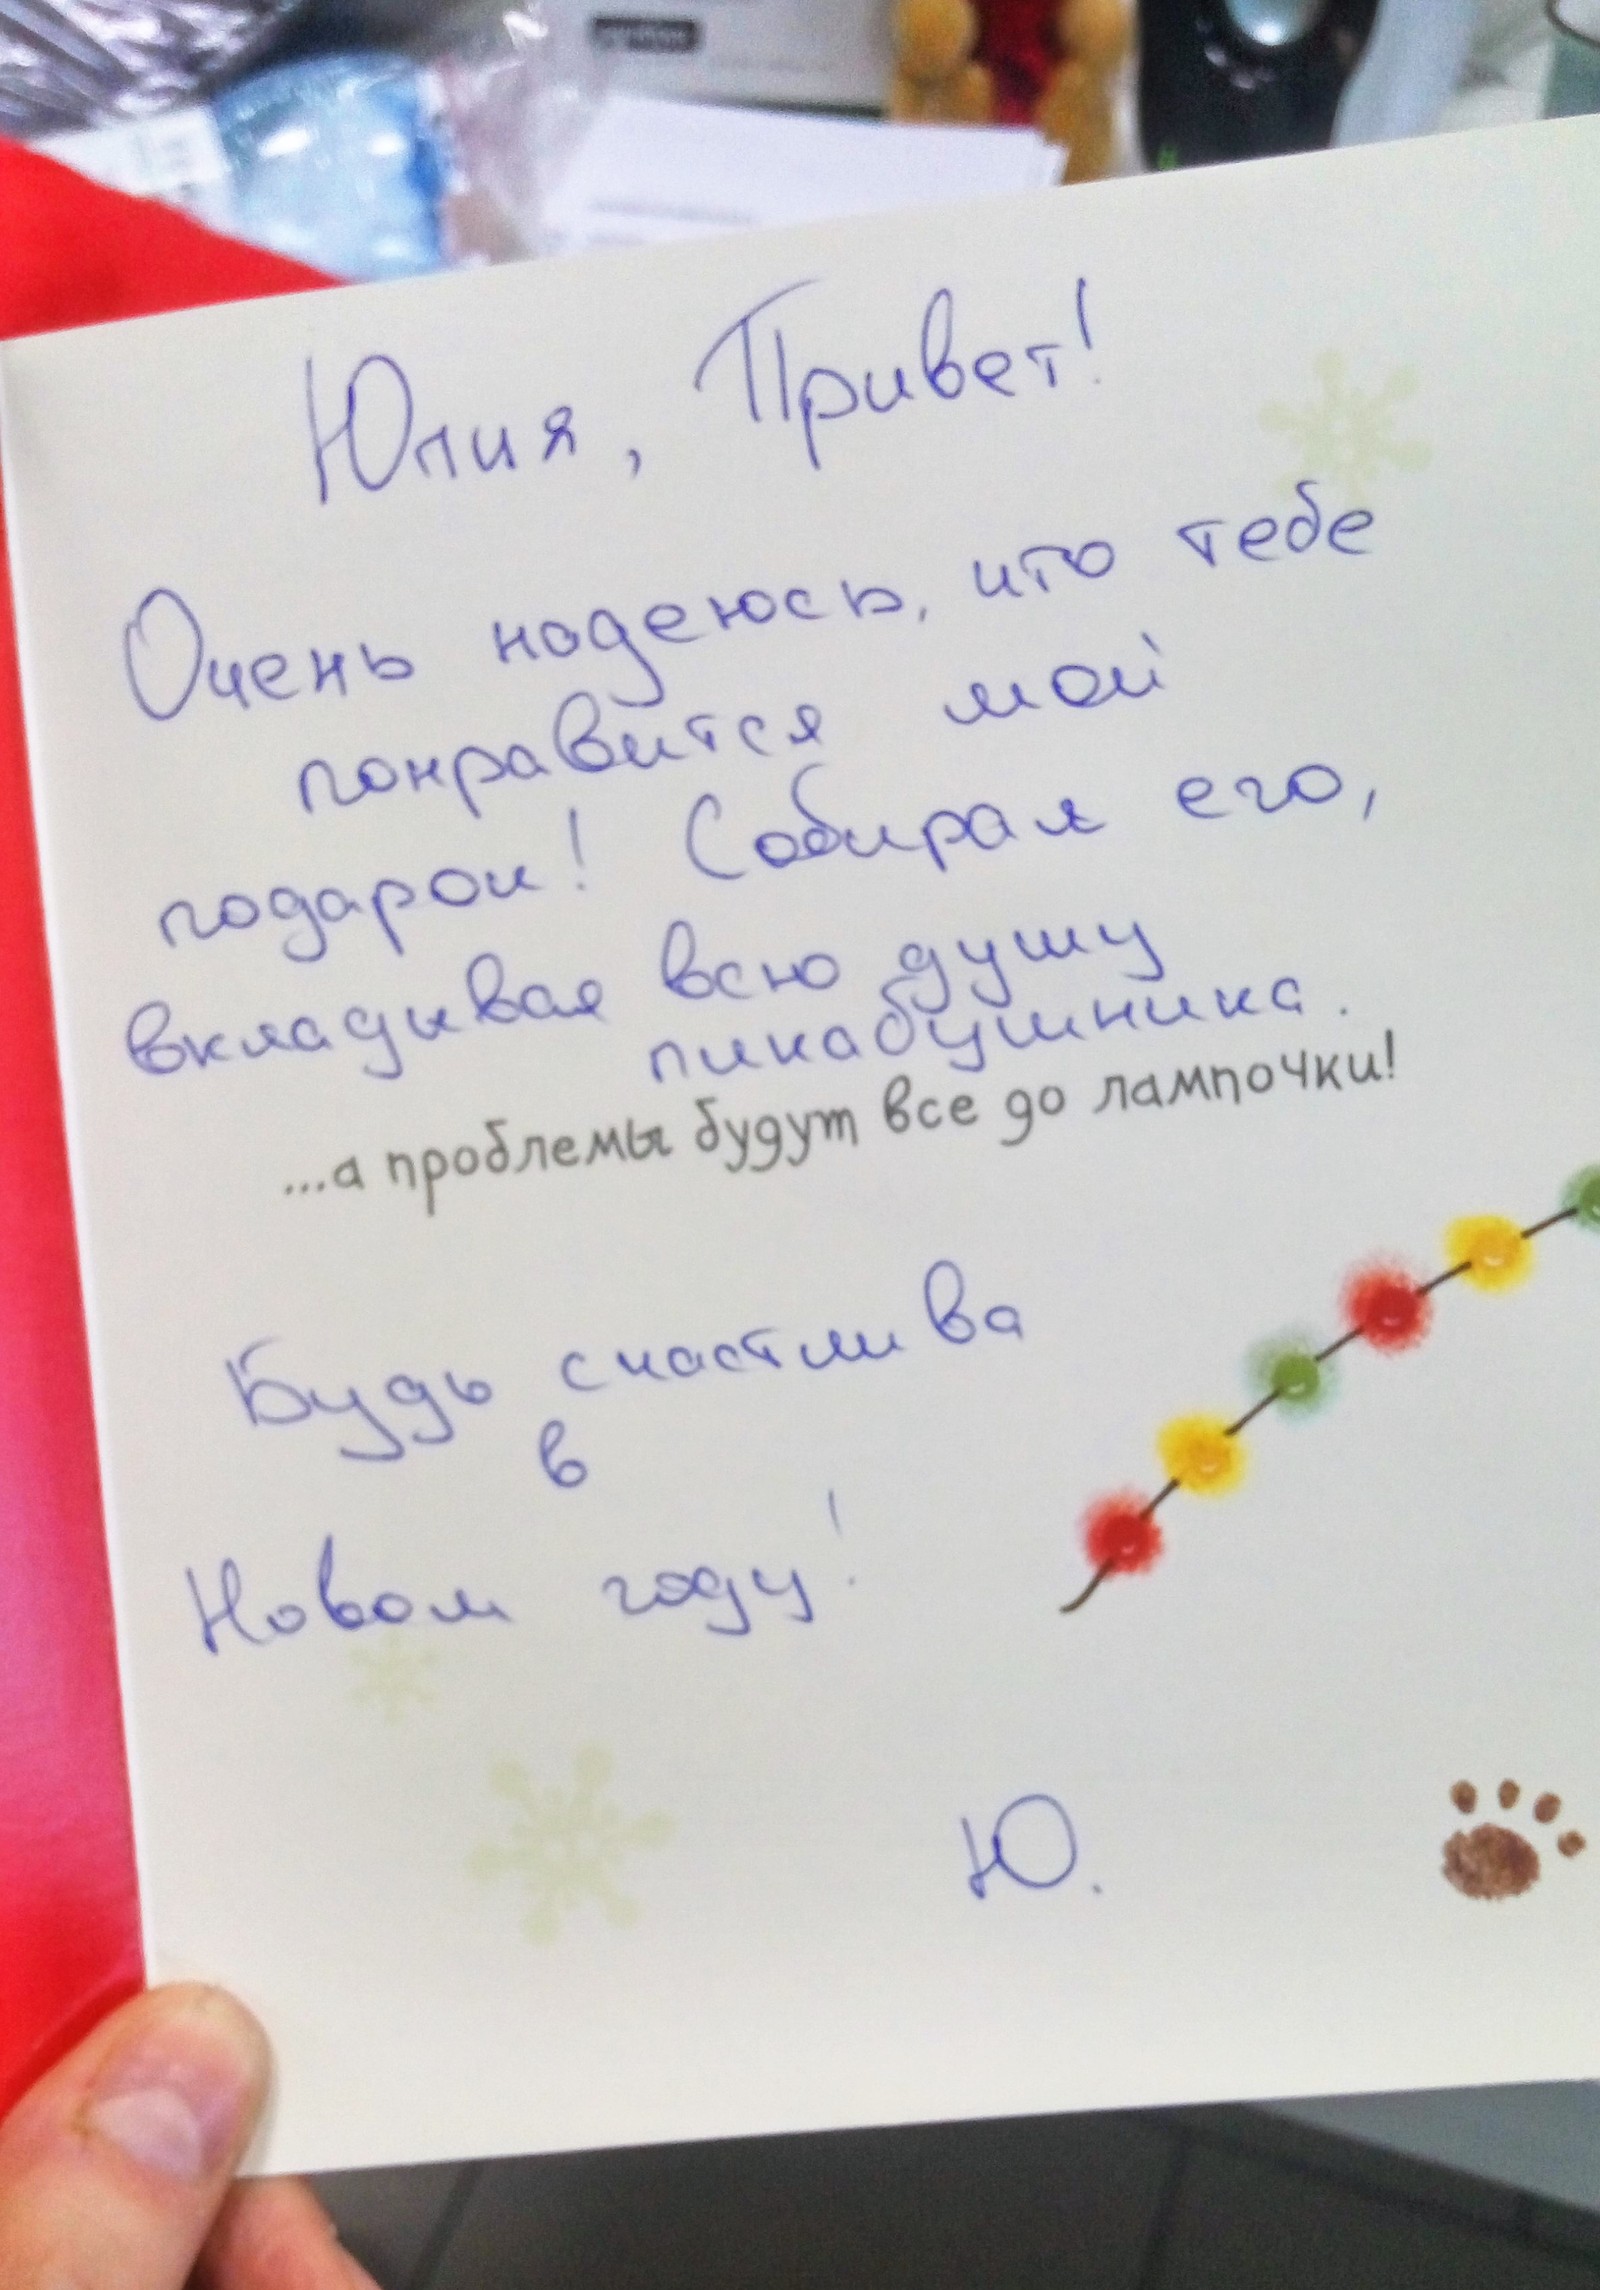 Юлия, Привет!
Очень надеюсь, что тебе
понравится мой
подарок! Собирал его,
вкладывая всю душу
пикабушника.
...а проблемы будут все до лампочки!
Будь счастлива
в
Новом году!
Ю.